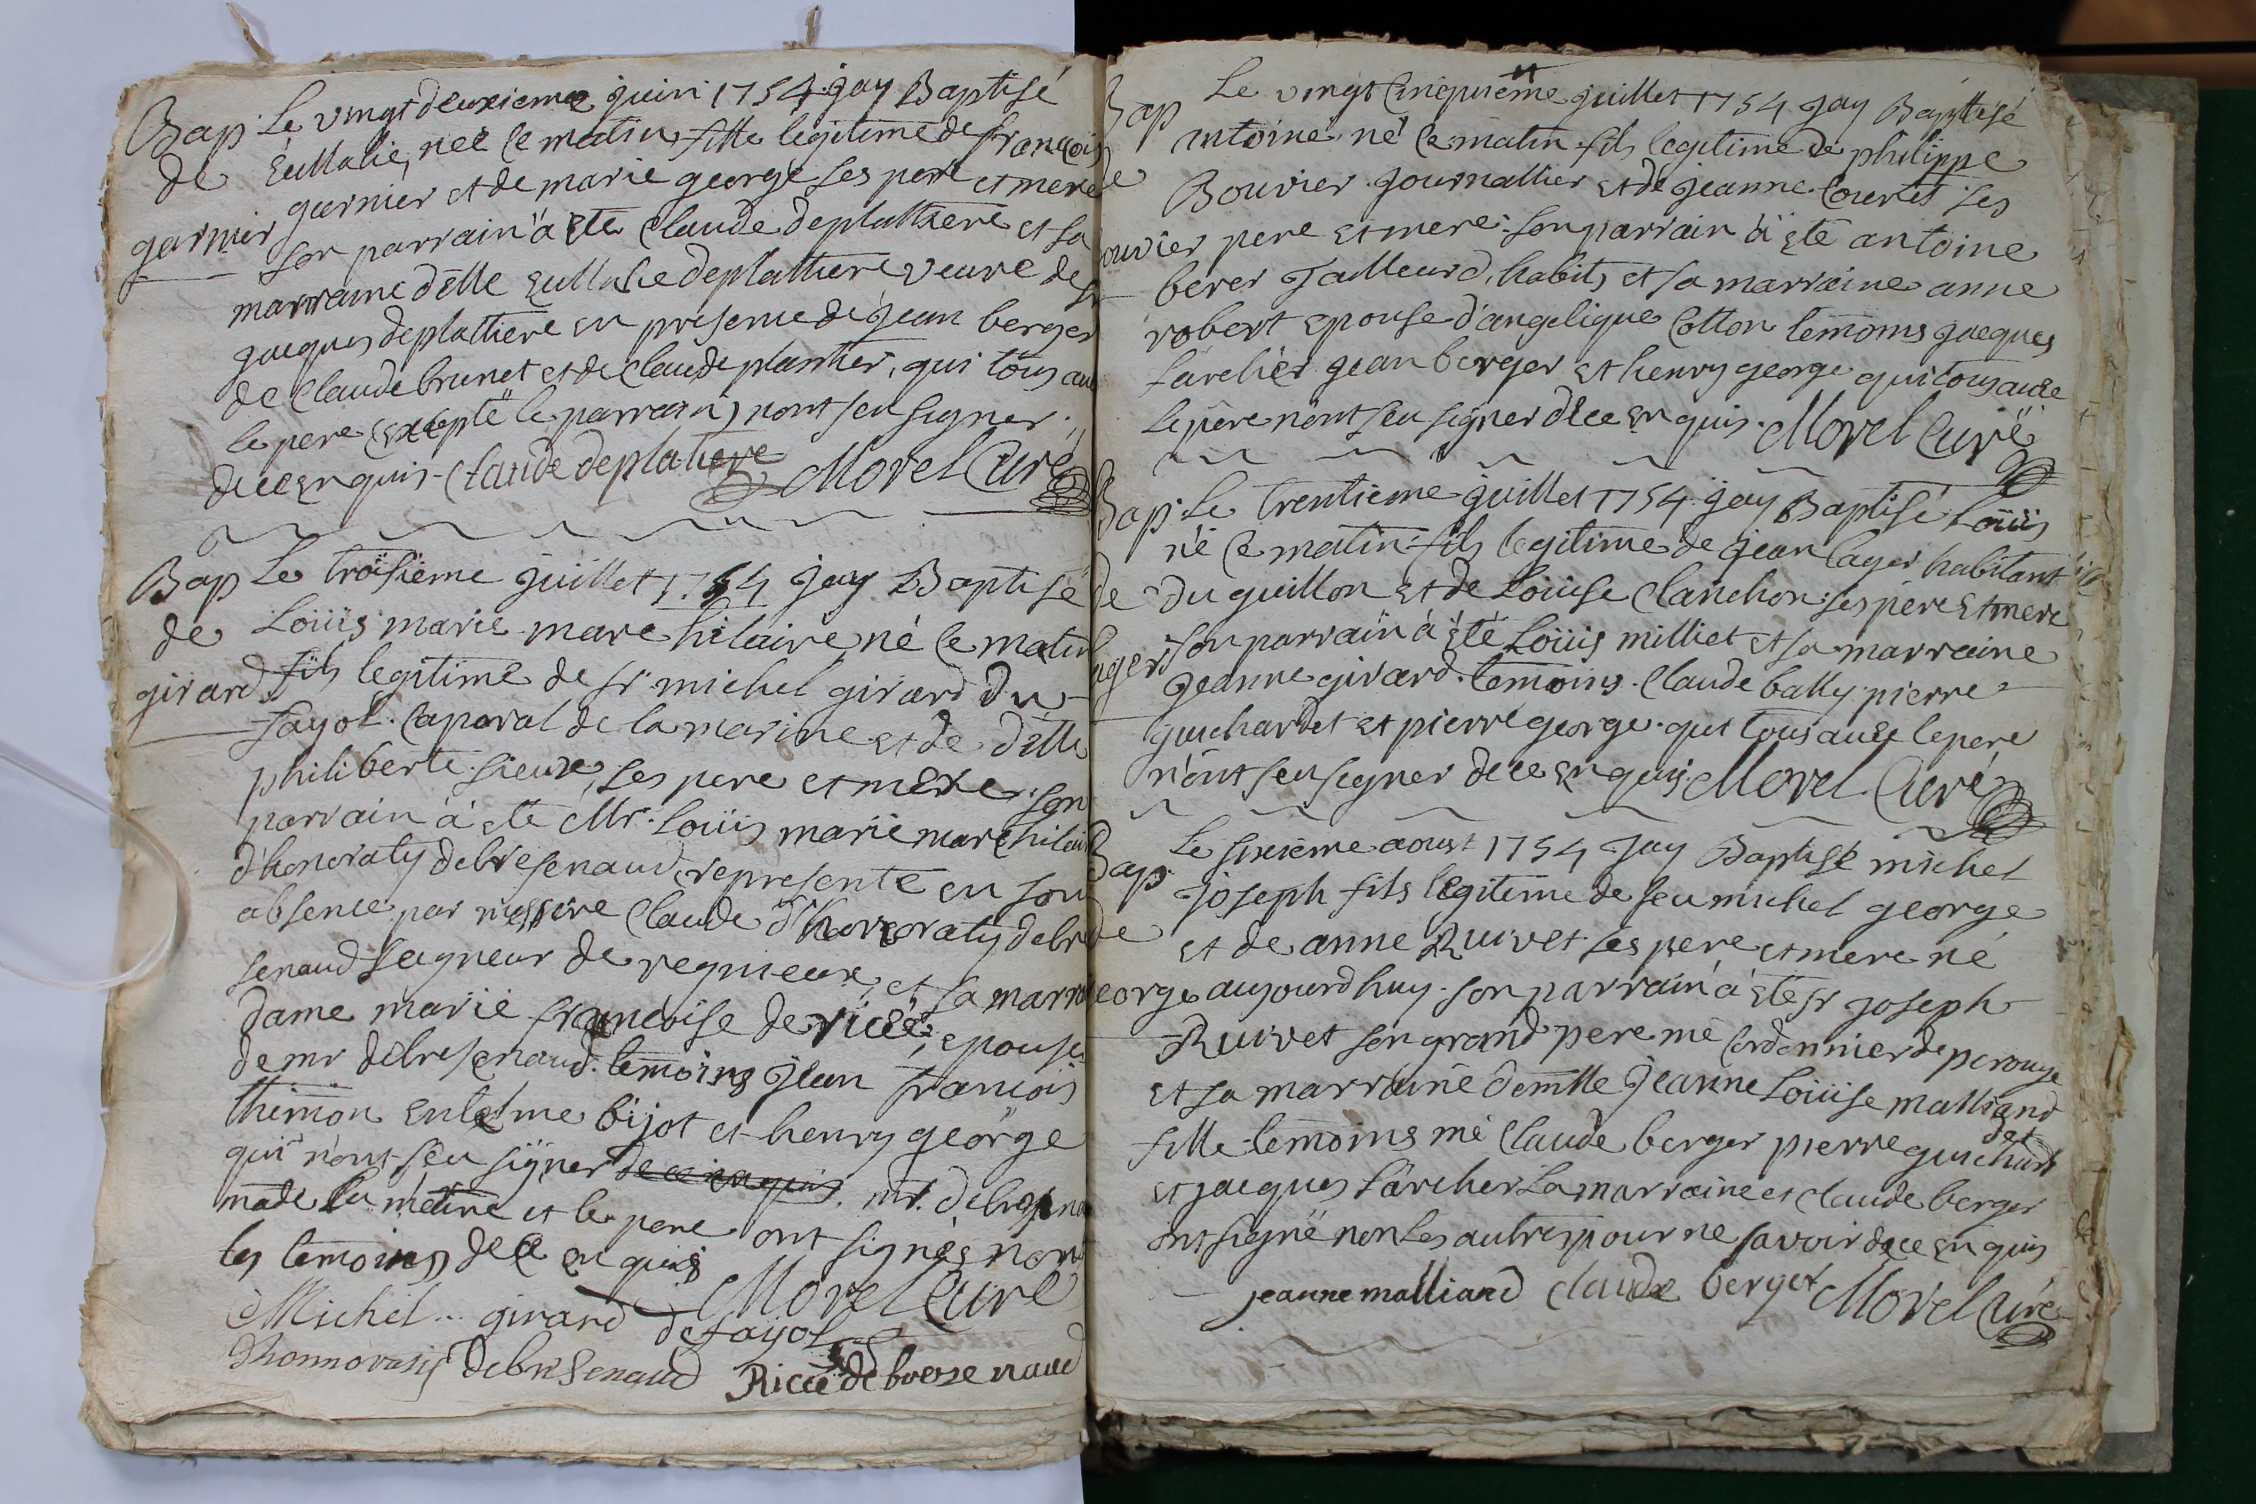 Bap Le vingt deuxieme juin 1754 jay Baptisé
de Eullalie, née ce matin fille legitime de françois
garnier et de marie george ses pere et mere
garnier son parrain à été Claude deplattiere et sa
marraine d'elle Eullalie deplattiere veuve de sr
jacques deplattiere en presence de jean berger
de Claude brunet et de Claude plantier, qui tous avec
le pere (excepté le parrain) nont seu signer
de ce enquis - Claude deplatiere Morel Curé
Bap Le troisieme juillet 1754 jay Baptisé
de Loüis marie marc hilaire né ce matin
girard fils legitime de sr michel girard du
fayol Caporal de la marine et de d'elle
philiberte sieux, ses pere et mere. son
parrain à été Mr. Loüis marie marc hilaire
d'honoraty debresenaud, representé en son
absence par messire Claude d'honoraty debre
senaud seigneur de regnieux, et sa marraine
dame marie françoise de ricée, epouse
de mr debresenaud. temoins jean françois
thimon enlelme bijot et henry george
qui n'ont seu signer de ce enquis. mr. debresenaud
made la même et le pere ont signés non
les temoins de ce enquis Morel Curé
Michel girard de fayol
Dhonnoraty debresenaud Ricée de bresenaud
Bap Le vingt cinquieme juillet 1754 jay Baptisé
antoine né ce matin fils legitime de philippe
de Bouvier journallier et de jeanne Couret ses
ouvier pere et mere: son parrain à été antoine
berer tailleur d'habits et sa marraine anne
robert epouse d'angelique Cotton temoins jacques
larcher jean berger et henry george qui tous avec
le pere n'ont seu signer de ce enquis. Morel Curé
Bap Le trentieme juillet 1754 jay Baptisé Loüis
né ce matin fils legitime de jean lager habitant
de du guillon et de Loüise Clanchon ses pere et mere
ager son parrain à été Loüis milliet et sa marraine
jeanne girard. temoins. Claude bally pierre
guichardet et pierre george. qui tous avec le pere
n'ont seu signer de ce enquis Morel Curé
Bap. Le sixieme aoust 1754 jay Baptisé michel
joseph fils legitime de feu michel george
de et de anne Ruivet ses pere et mere né
eorge aujourdhuy. son parrain à été sr joseph
Ruivet son grand pere me Cordonnier de perouge
et sa marraine demlle jeanne Loüise malliand
fille. temoins me Claude berger pierre guichardet
et jacques larcher La marraine et claude berger
ont signé non les autres pour ne savoir de ce enquis
jeanne malliand claude berger Morel Curé